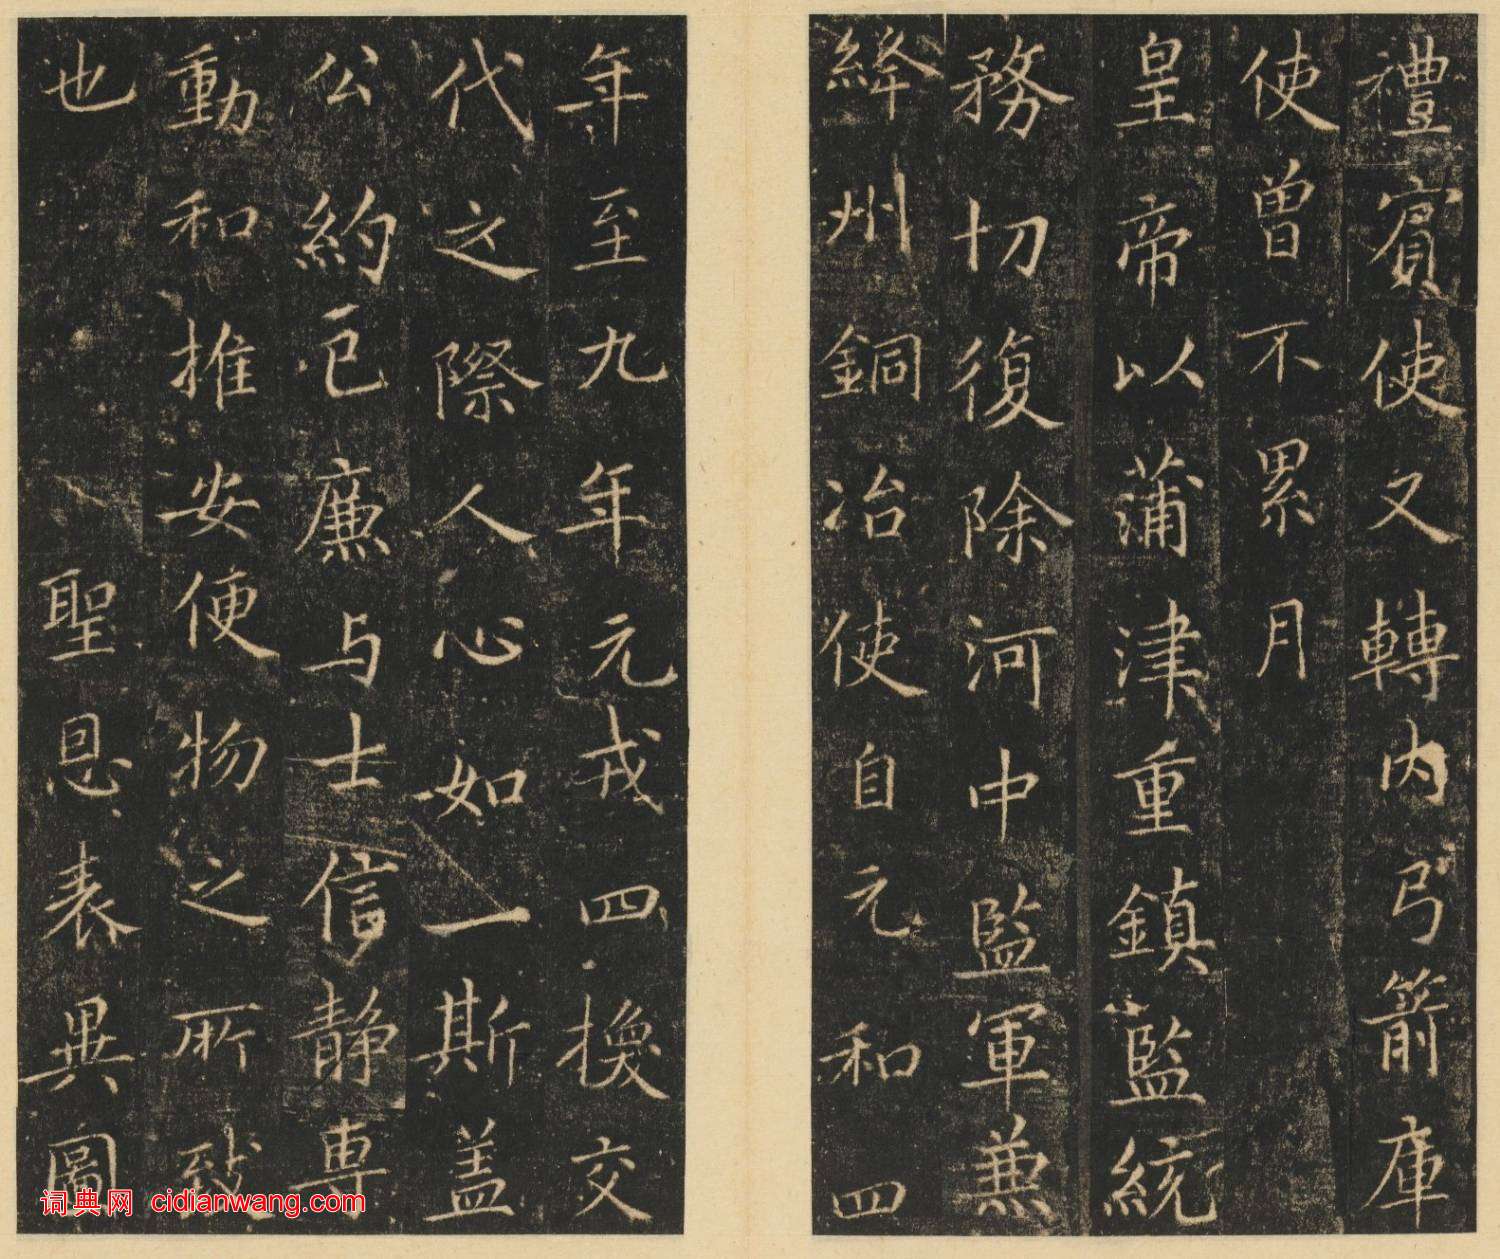 禮賓使又轉內弓箭庫
使曾不累月
皇帝以蒲津重鎮監統
務切復除河中監軍兼
絳州銅冶使自元和四
年至九年元戎四換交
代之際人心如一斯盖
公約己廉与士信静專
動和推安便物之所致
也 聖恩表異圖
词典网 cidianwang.com